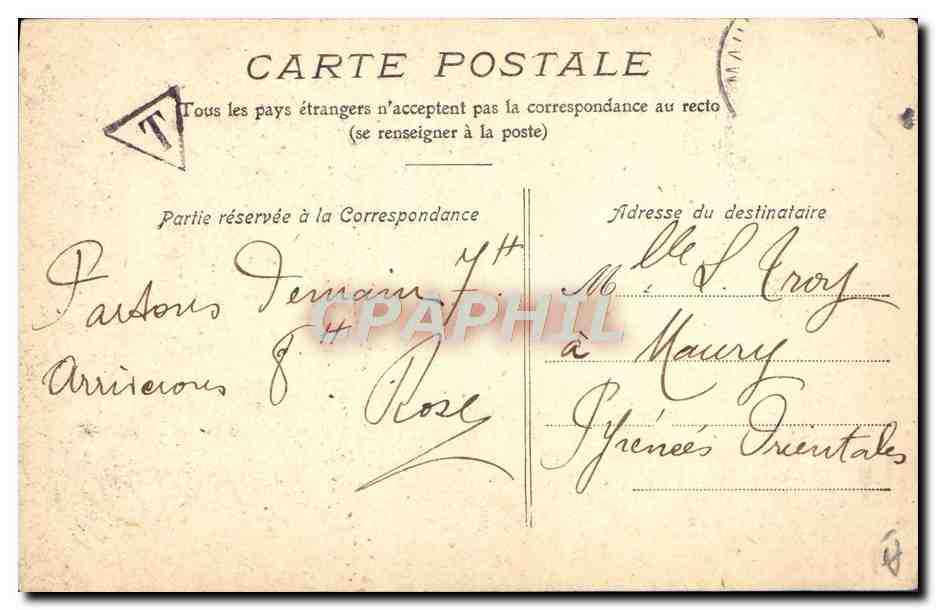 CARTE POSTALE
Tous les pays étrangers n'acceptent pas la correspondance au recto
(se renseigner à la poste)
T
MAU
Partie réservée à la Correspondance
Partons Demain 7H.
Arriverons 8H.
Rose
CPAPHIL
Adresse du destinataire
Mlle L. Troy
à Maury
Pyrénées Orientales